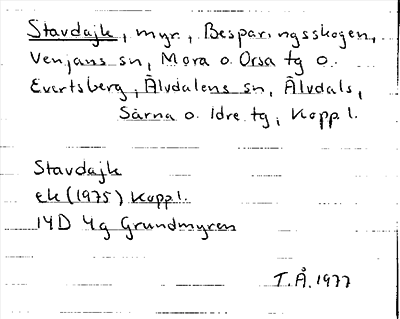 Stavdajk, myr, Besparingsskogen,
Venjans sn, Mora o. Orsa tg o.
Evertsberg, Älvdalens sn, Älvdals,
Särna o. Idre tg, Kopp l.
Stavdajk
ek (1975) Kopp l.
14D 4g Grundmyren
T.Å. 1977